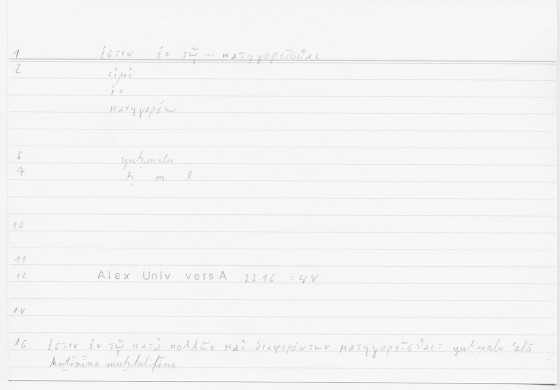 1 ἐστιν ἐν τῷ ... κατηγορεῖσθαι
2 εἰμί
ἐν
κατηγορέω
6 yuḥmalu
7 ḥ m l
10
11
12 Alex Univ vers A 22.16 = 4
14
16 ἐστιν ἐν τῷ κατὰ πολλῶν καὶ διαφερόντων κατηγορεῖσθαι = yuḥmalu ʿalā
kaṯīrīna muḫtalifīna